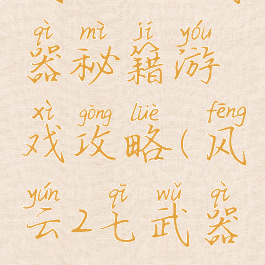 qì mì jí yóu
器秘籍游
xì gōng lüè fēng
戏攻略(风
yún qī wǔ qì
云2七武器